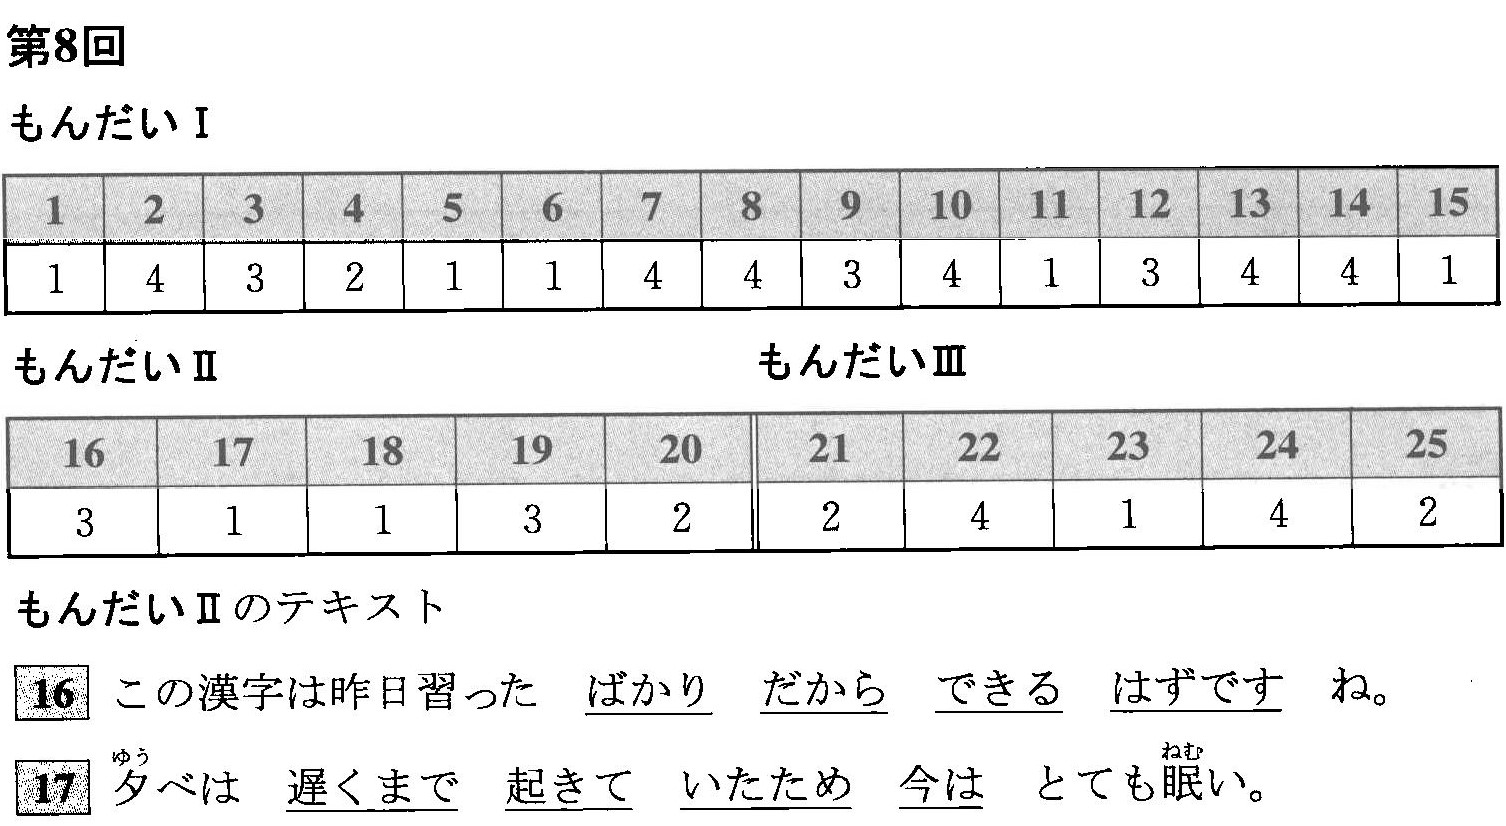 第8回
もんだいⅠ
1 2 3 4 5 6 7 8 9 10 11 12 13 14 15
1 4 3 2 1 1 4 4 3 4 1 3 4 4 1
もんだいⅡ もんだいⅢ
16 17 18 19 20 21 22 23 24 25
3 1 1 3 2 2 4 1 4 2
もんだいⅡのテキスト
16 この漢字は昨日習った ばかり だから できる はずです ね。
ゆう ねむ
17 夕べは 遅くまで 起きて いたため 今は とても眠い。